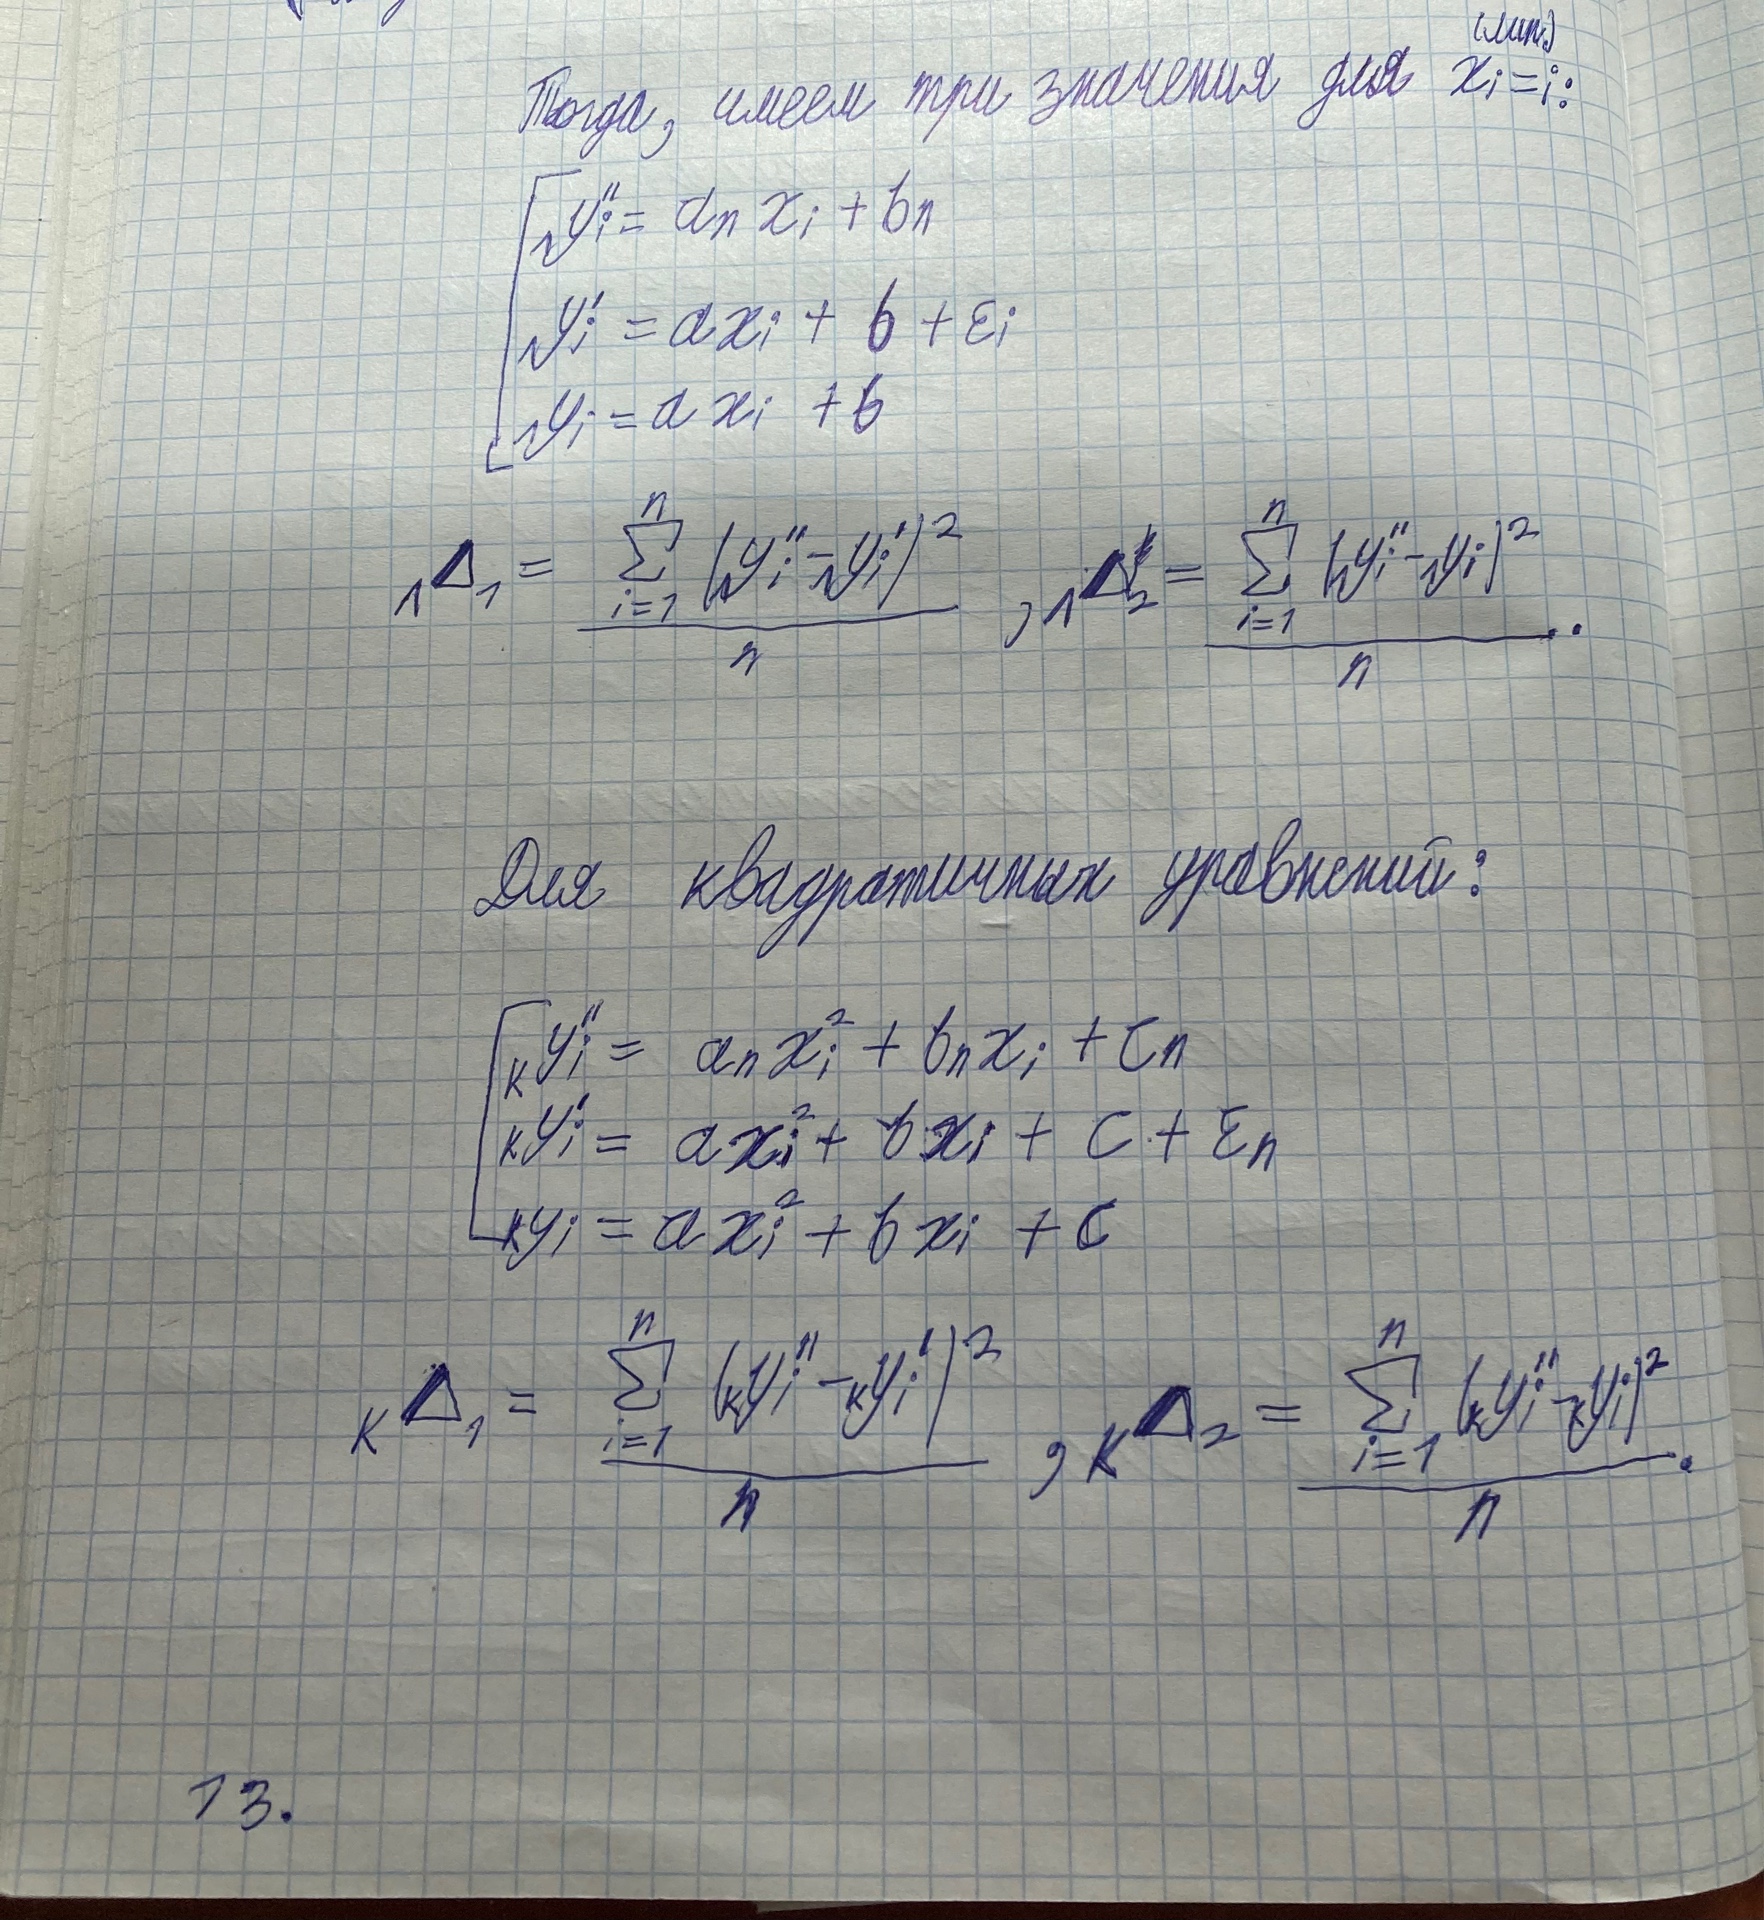 (лин.)
Тогда, имеем три значения для xᵢ = i:
лyᵢ'' = aₙ xᵢ + bₙ
лyᵢ' = a xᵢ + b + εᵢ
лyᵢ = a xᵢ + b
лΔ₁ = ∑ᵢ₌₁ⁿ (лyᵢ'' - лyᵢ')² / n , лΔ₂ = ∑ᵢ₌₁ⁿ (лyᵢ'' - лyᵢ)² / n .
Для квадратичных уравнений:
кyᵢ'' = aₙ xᵢ² + bₙ xᵢ + cₙ
кyᵢ' = a xᵢ² + b xᵢ + c + εₙ
кyᵢ = a xᵢ² + b xᵢ + c
кΔ₁ = ∑ᵢ₌₁ⁿ (кyᵢ'' - кyᵢ')² / n , кΔ₂ = ∑ᵢ₌₁ⁿ (кyᵢ'' - кyᵢ)² / n .
13.